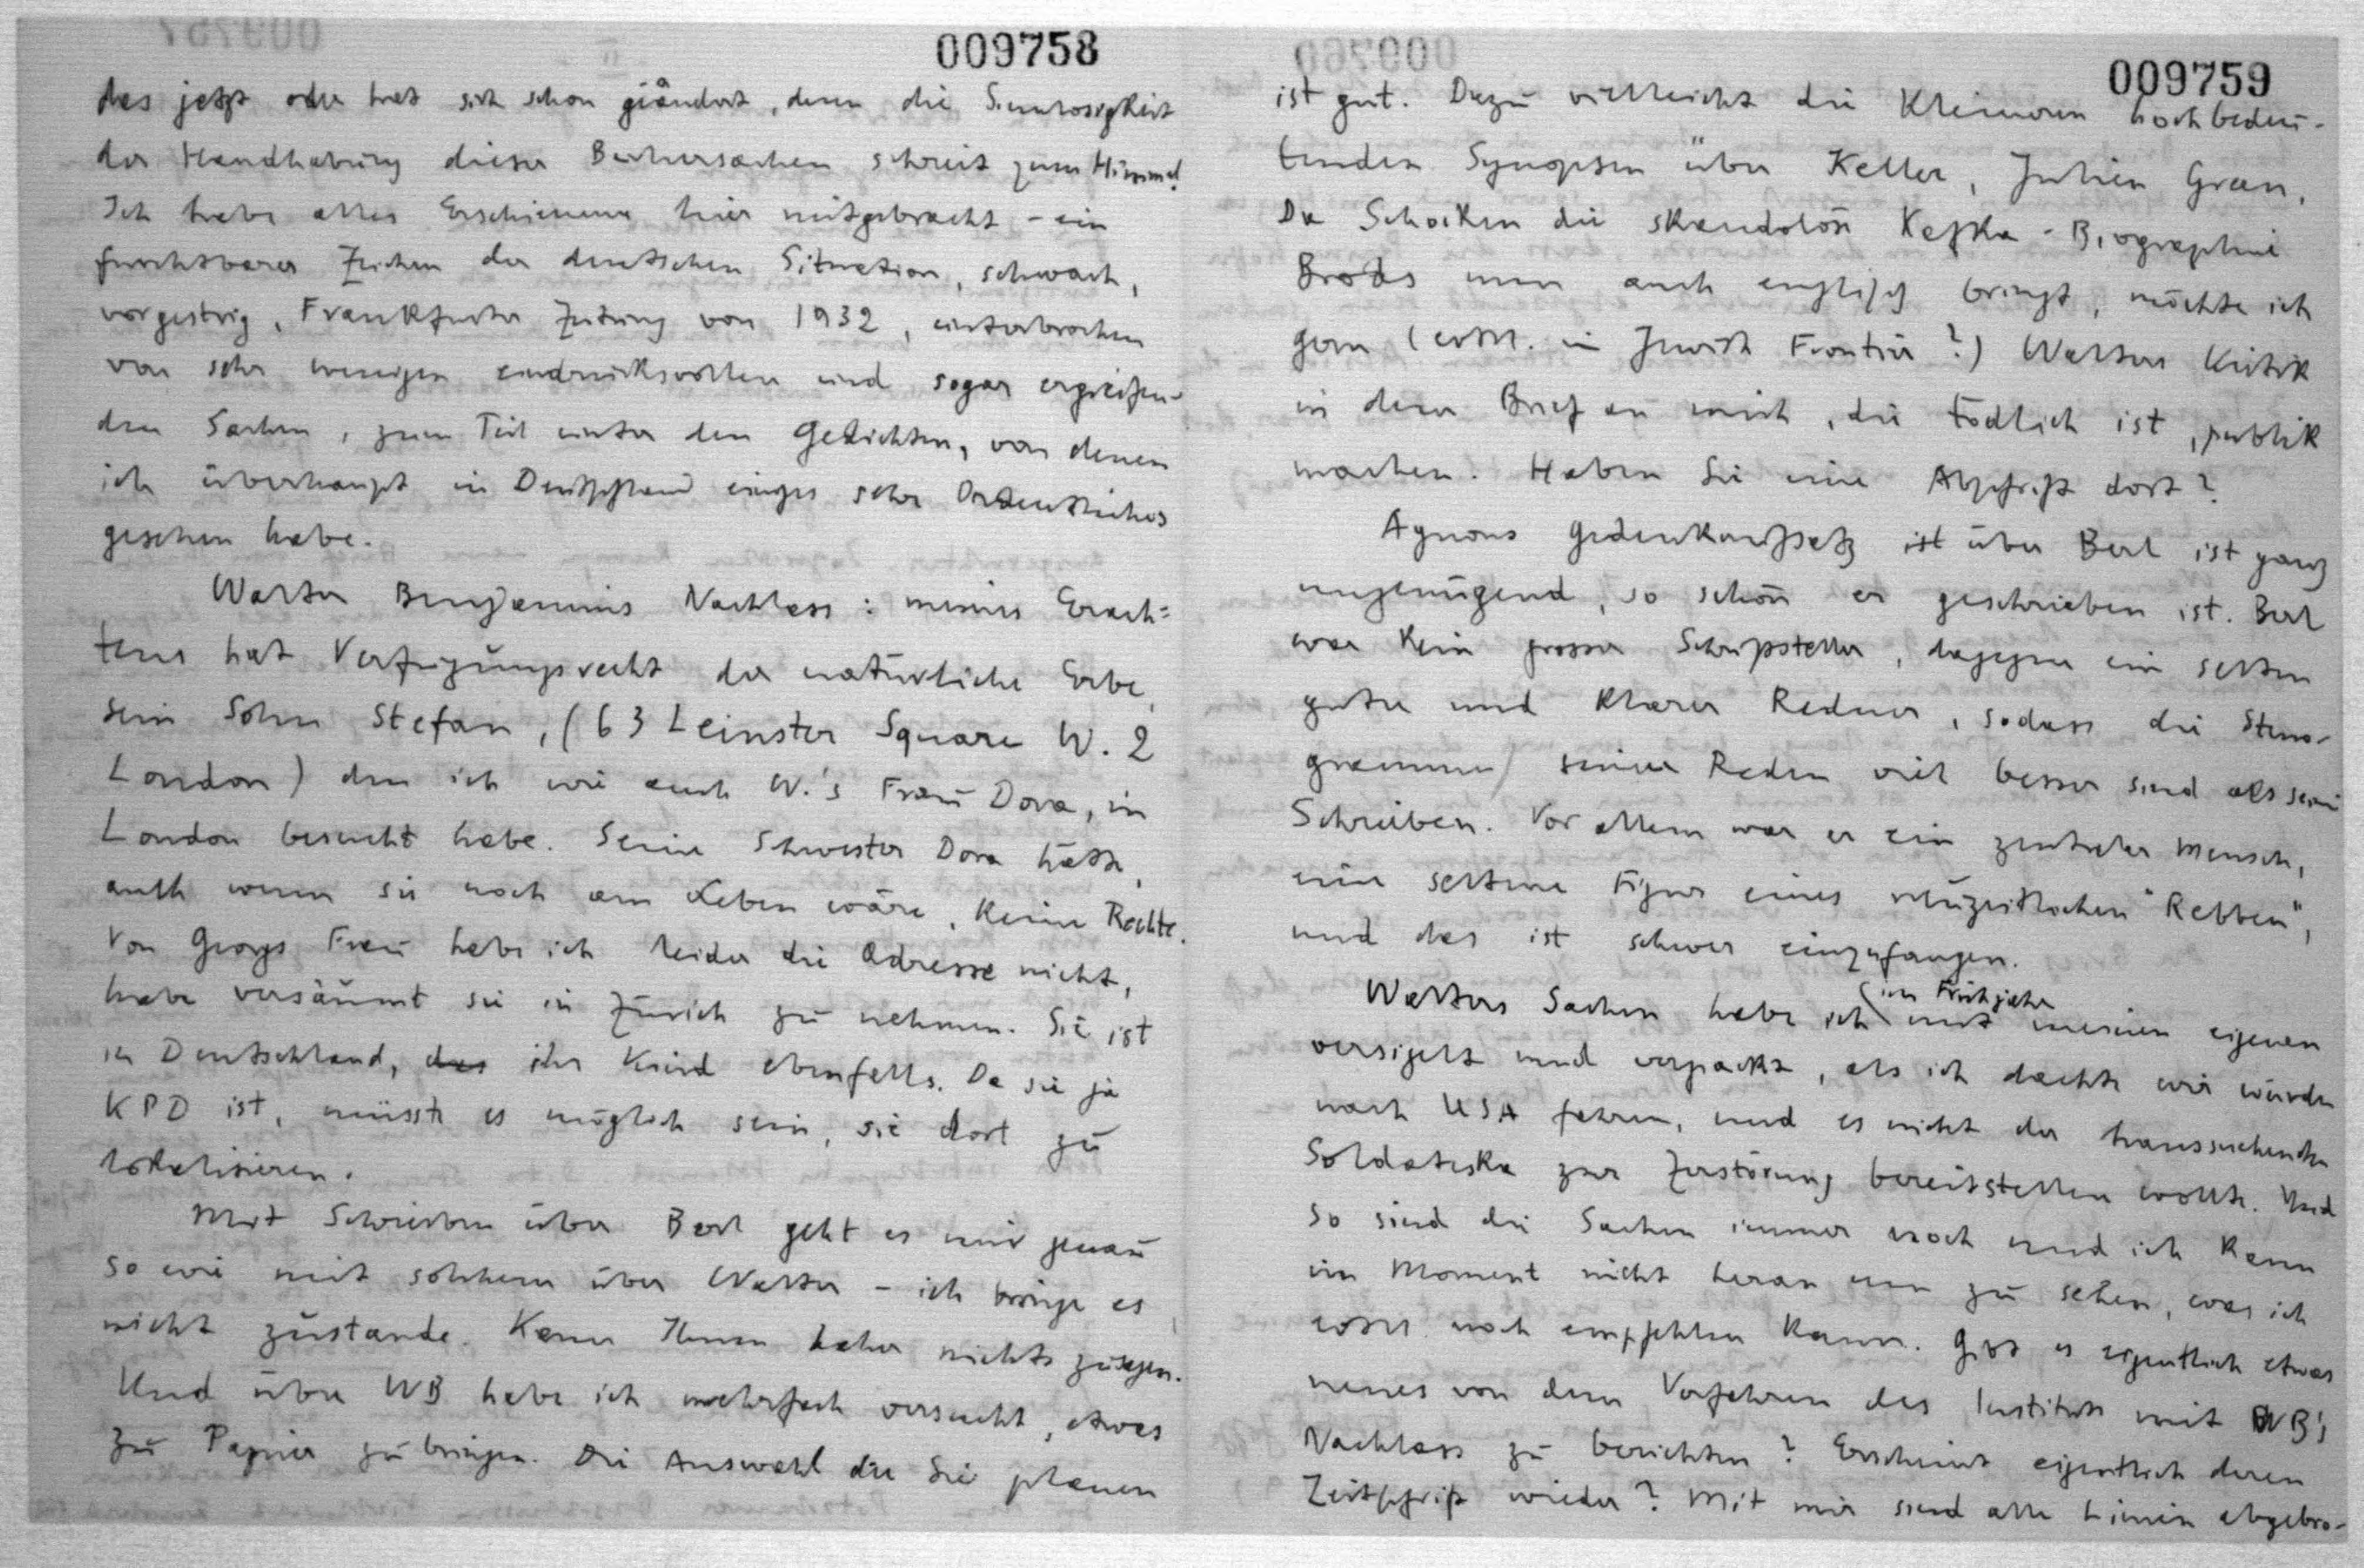 009758
das jetzt oder hat sich schon geändert, denn die Sinnlosigkeit
der Handhabung dieser Büchersachen schreit zum Himmel.
Ich habe alles Erschienene hier mitgebracht - ein
furchtbares Zeichen der deutschen Situation, schwach,
vorgestrig, Frankfurter Zeitung von 1932, unterbrochen
von sehr wenigen eindrucksvollen und sogar ergreifen-
den Sachen, zum Teil unter den Gedichten, von denen
ich überhaupt in Deutschland einiges sehr Ordentliches
gesehen habe.
Walter Benjamins Nachlass: meines Erach=
tens hat Verfügungsrecht der natürliche Erbe,
sein Sohn Stefan, (63 Leinster Square W. 2
London) den ich wie auch W.'s Frau Dora, in
London besucht habe. Seine Schwester Dora hätte,
auch wenn sie noch am Leben wäre, keine Rechte.
Von Georgs Frau habe ich leider die Adresse nicht,
habe versäumt sie in Zürich zu nehmen. Sie ist
in Deutschland, das ihr Kind ebenfalls. Da sie ja
KPD ist, müsste es möglich sein, sie dort zu
lokalisieren.
Mit Schreiben über Berl geht es mir genau
so wie mit solchem über Walter - ich bringe es
nicht zustande. Kann Ihnen daher nichts zusagen.
Und über WB habe ich mehrfach versucht, etwas
zu Papier zu bringen. Die Auswahl die Sie planen
009759
ist gut. Dazu vielleicht die kleineren hochbedeu-
tenden Synopsen über Keller, Julien Green.
Da Schocken die skandalöse Kafka-Biographie
Brods nun auch englisch bringt, möchte ich
gern (evtl. in Jewish Frontier?) Walters Kritik
in dem Brief an mich, die tödlich ist, publik
machen. Haben Sie eine Abschrift dort?
Agnons Gedenkaufsatz ist über Berl ist ganz
ungenügend, so schön er geschrieben ist. Berl
war kein grosser Schriftsteller, dagegen ein selten
guter und klarer Redner, sodass die Steno-
gramme seiner Reden viel besser sind als sein
Schreiben. Vor allem war er ein zentraler Mensch,
eine seltene Figur eines neuzeitlichen "Rebben",
und das ist schwer einzufangen.
Walters Sachen habe ich (im Frühjahr mit meinen eigenen
versigelt und verpackt, als ich dachte wir würden
nach USA fahren, und es nicht der haussuchenden
Soldateska zur Zerstörung bereitstellen wollte. Und
so sind die Sachen immer noch und ich kann
im Moment nicht heran um zu sehen, was ich
evtl. noch empfehlen kann. Gibt es eigentlich etwas
neues von dem Verfahren des Instituts mit WB's
Nachlass zu berichten? Erscheint eigentlich deren
Zeitschrift wieder? Mit mir sind alle Linien abgebro-